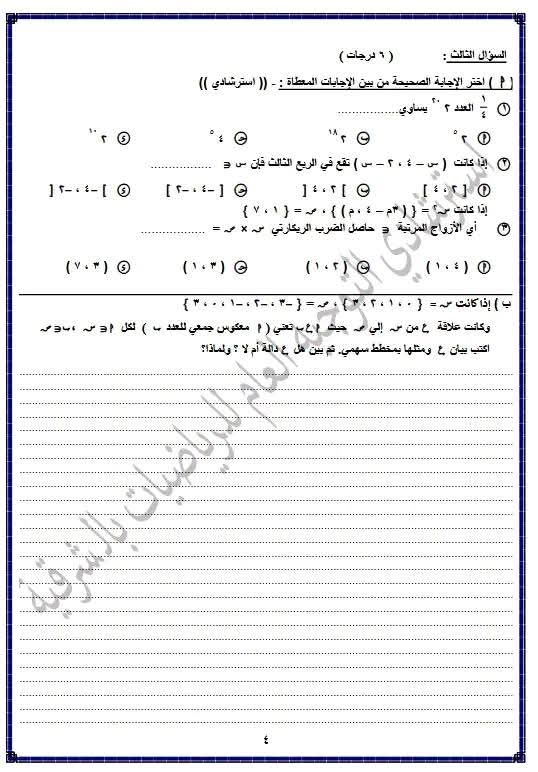 السؤال الثالث : ( ٦ درجات )
[ أ ] اختر الإجابة الصحيحة من بين الإجابات المعطاة : - (( استرشادي ))
١ ¼ العدد ٢^٢٠ يساوي.................
أ ٢^٥ ب ٢^١٨ جـ ٤^٥ د ٢^١٠
٢ إذا كانت ( س – ٤ ، ٢ – س ) تقع في الربع الثالث فإن س ∋ .................
أ [ ٢ ، ٤ ] ب ] ٢ ، ٤ [ جـ [ -٤ ، -٢ ] د ] -٤ ، -٢ [
إذا كانت س٢ = { ( ٣م – ٤ ، م ) } ، ص = { ١ ، ٧ }
٣ أي الأزواج المرتبة ∋ حاصل الضرب الديكارتي س × ص = .................
أ ( ٤ ، ١ ) ب ( ٢ ، ١ ) جـ ( ٣ ، ١ ) د ( ٣ ، ٧ )
ب ) إذا كانت س = { ٠ ، ١ ، ٢ ، ٣ } ، ص = { -٣ ، -٢ ، -١ ، ٠ ، ٣ }
وكانت علاقة ع من س إلي ص حيث أ ع ب تعني ( أ معكوس جمعي للعدد ب ) لكل أ ∋ س ، ب ∋ ص
اكتب بيان ع ومثلها بمخطط سهمي. ثم بين هل ع دالة أم لا ؟ ولماذا؟
استرشادي التوجيه العام للرياضيات بالشرقية
٤